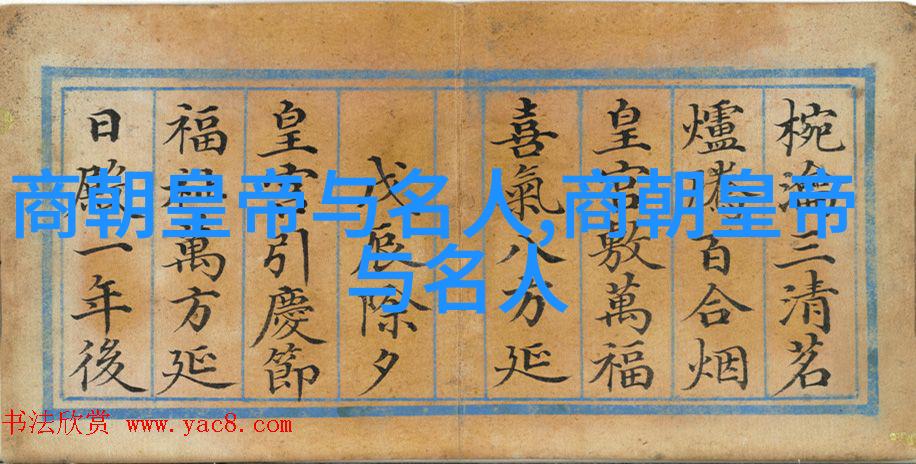 椀三清茗
爐百合烟
皇宫敷萬福
喜氣八方延
戊辰除夕
皇宫引慶節
福萬方延
日一年後
商朝皇帝与名人,商朝皇帝
与名人
书法欣赏 www.yac8.com